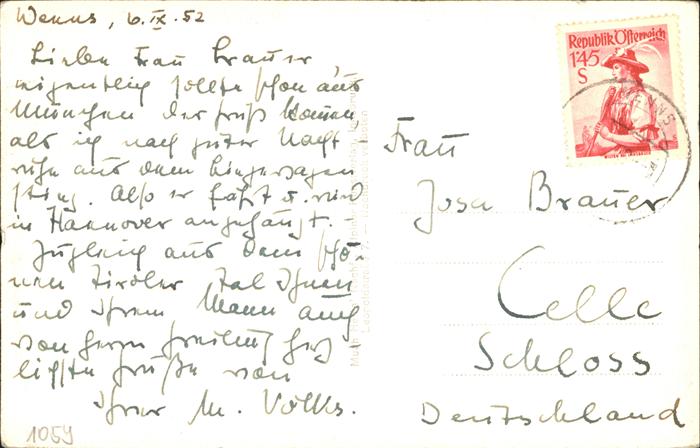 Wenns, 6.IX.52
Liebe Frau Brauer
eigentlich sollte schon aus
München der Gruß kommen,
als ich nach guter Nacht-
ruhe aus dem Liegewagen
stieg. Also er fährt u. wird
in Hannover angehängt. -
Zugleich aus dem schö-
nen Tiroler Tal Ihnen
und Ihrem Mann auch
von Herrn herz
lichste Grüße von
Ihrer M. Volks.
1059
Republik Österreich
1'45
S
WENNS
Frau
Josa Brauer
Celle
Schloss
Deutschland